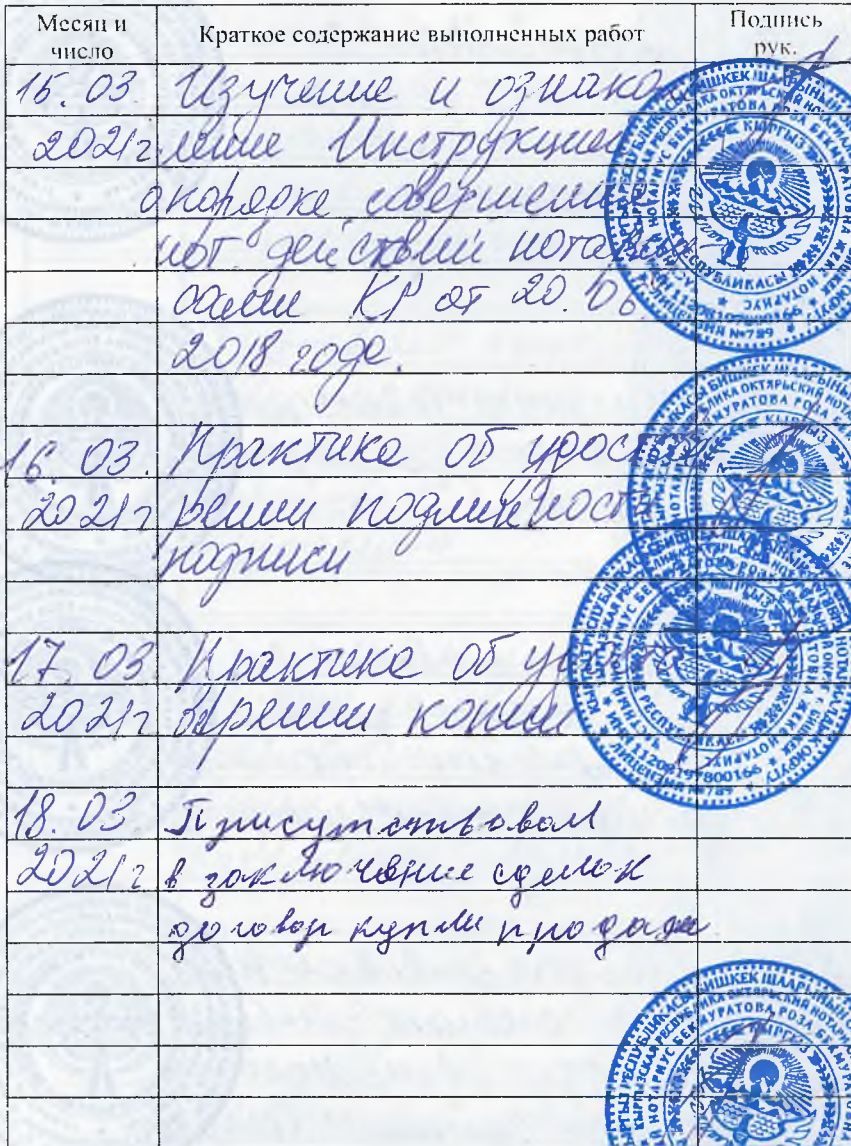 Месяц и число Краткое содержание выполненных работ Подпись рук.
15.03 Изучение и ознаком
2021г ление Инструкцией
о порядке совершения
нот. действий нотари
сами КР от 20.06.
2018 года.
16.03. Практика об удост
2021г рении подлинность
подписи
17.03 Практика об удосто
2021г верении копии
18.03 Присутствовал
2021г в заключение сделок
договор купли продажи
БИШКЕК ШААРЫНЫН
НОТАРИУС БЕКМУРАТОВА РОЗА
КЫРГЫЗ РЕСПУБЛИКАСЫ
ЛИЦЕНЗИЯ №789